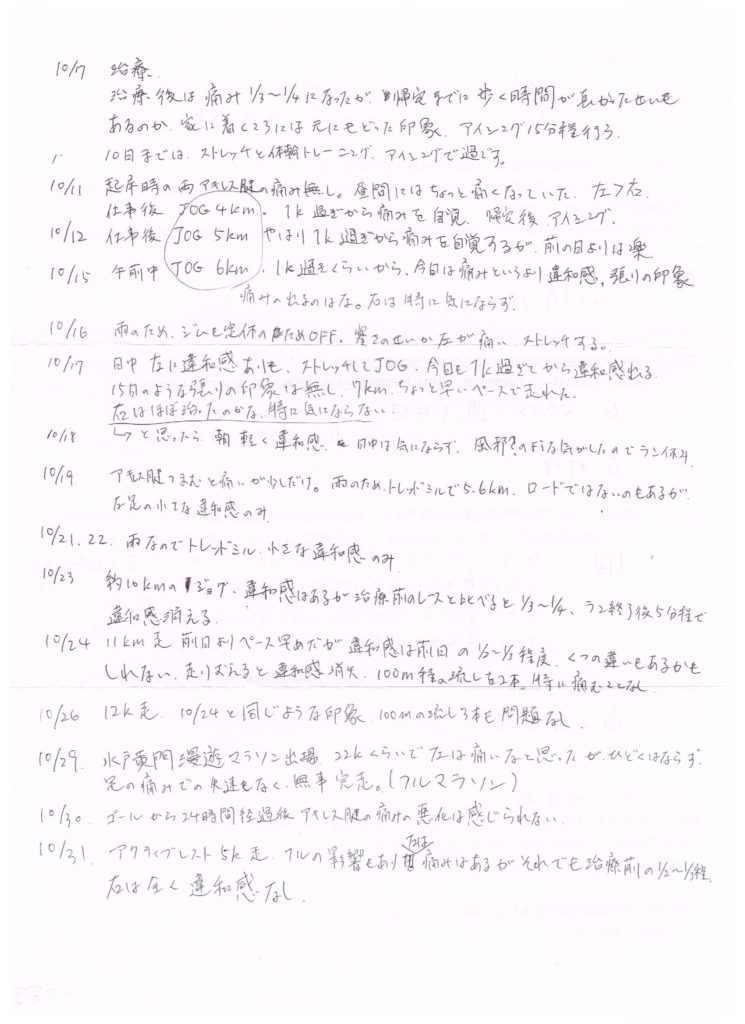 10/7 治療.
治療後は痛み1/3〜1/4になったが、帰宅までに歩く時間が長かったせいも
あるのか、家に着くころには元にもどった印象、アイシング15分程行う.
10日までは、ストレッチと体幹トレーニング、アイシングで過ごす。
10/11 起床時の両アキレス腱の痛み無し。昼間にはちょっと痛くなっていた. 左>右.
仕事後 JOG 4km. 1k過ぎから痛みを自覚. 帰宅後、アイシング.
10/12 仕事後 JOG 5km やはり1k過ぎから痛みを自覚するが、前の日よりは楽.
10/15 午前中 JOG 6km. 1k過ぎくらいから、今日は痛みというより違和感。張りの印象
痛みの出るのは左。右は特に気にならず.
10/16 雨のため、ジムも定休のためOFF。寒さのせいか左が痛い ストレッチする。
10/17 日中 左に違和感あるも、ストレッチしてJOG. 今日も1k過ぎてから違和感出る.
15日のような張りの印象は無し. 7km. ちょっと早いペースで走れた.
右はほぼ治ったのかな、特に気にならない
10/18 ↳と思ったら、朝 軽く違和感. 日中は気にならず. 風邪?のような気がしたのでラン休み.
10/19 アキレス腱つまむと痛いが少しだけ。雨のため、トレッドミルで5.6km. ロードではないのもあるが.
左足の小さな違和感のみ.
10/21.22. 雨なのでトレッドミル. 小さな違和感のみ
10/23 約10kmのジョグ. 違和感はあるが治療前のレースと比べると1/3〜1/4. ラン終了後5分程で
違和感消える.
10/24 11km走 前日よりペース早めだが違和感は前日の1/2〜1/3程度. くつの違いもあるかも
しれない. 走りおえると違和感消失. 100m程の流しを2本、特に痛むことなし
10/26 12k走. 10/24と同じような印象. 100mの流し3本も問題なし
10/29. 水戸黄門漫遊マラソン出場. 22kくらいで左は痛いなと思ったが、ひどくはならず.
足の痛みでの失速もなく、無事完走。(フルマラソン)
10/30. ゴールから24時間経過後アキレス腱の痛みの悪化は感じられない.
10/31. アクティブレスト5k走. フルの影響もあり 左は 痛みはあるがそれでも治療前の1/2〜1/3程.
右は全く違和感なし.